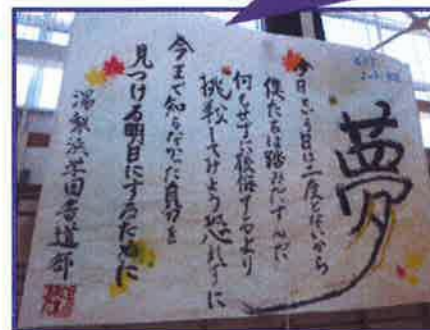 夢
今日という日は二度とないから
僕たちは踏み出すんだ
何もせずに後悔するより
挑戦してみよう恐れずに
今まで知らなかった自分を
見つける明日にするために
湯梨浜学園書道部